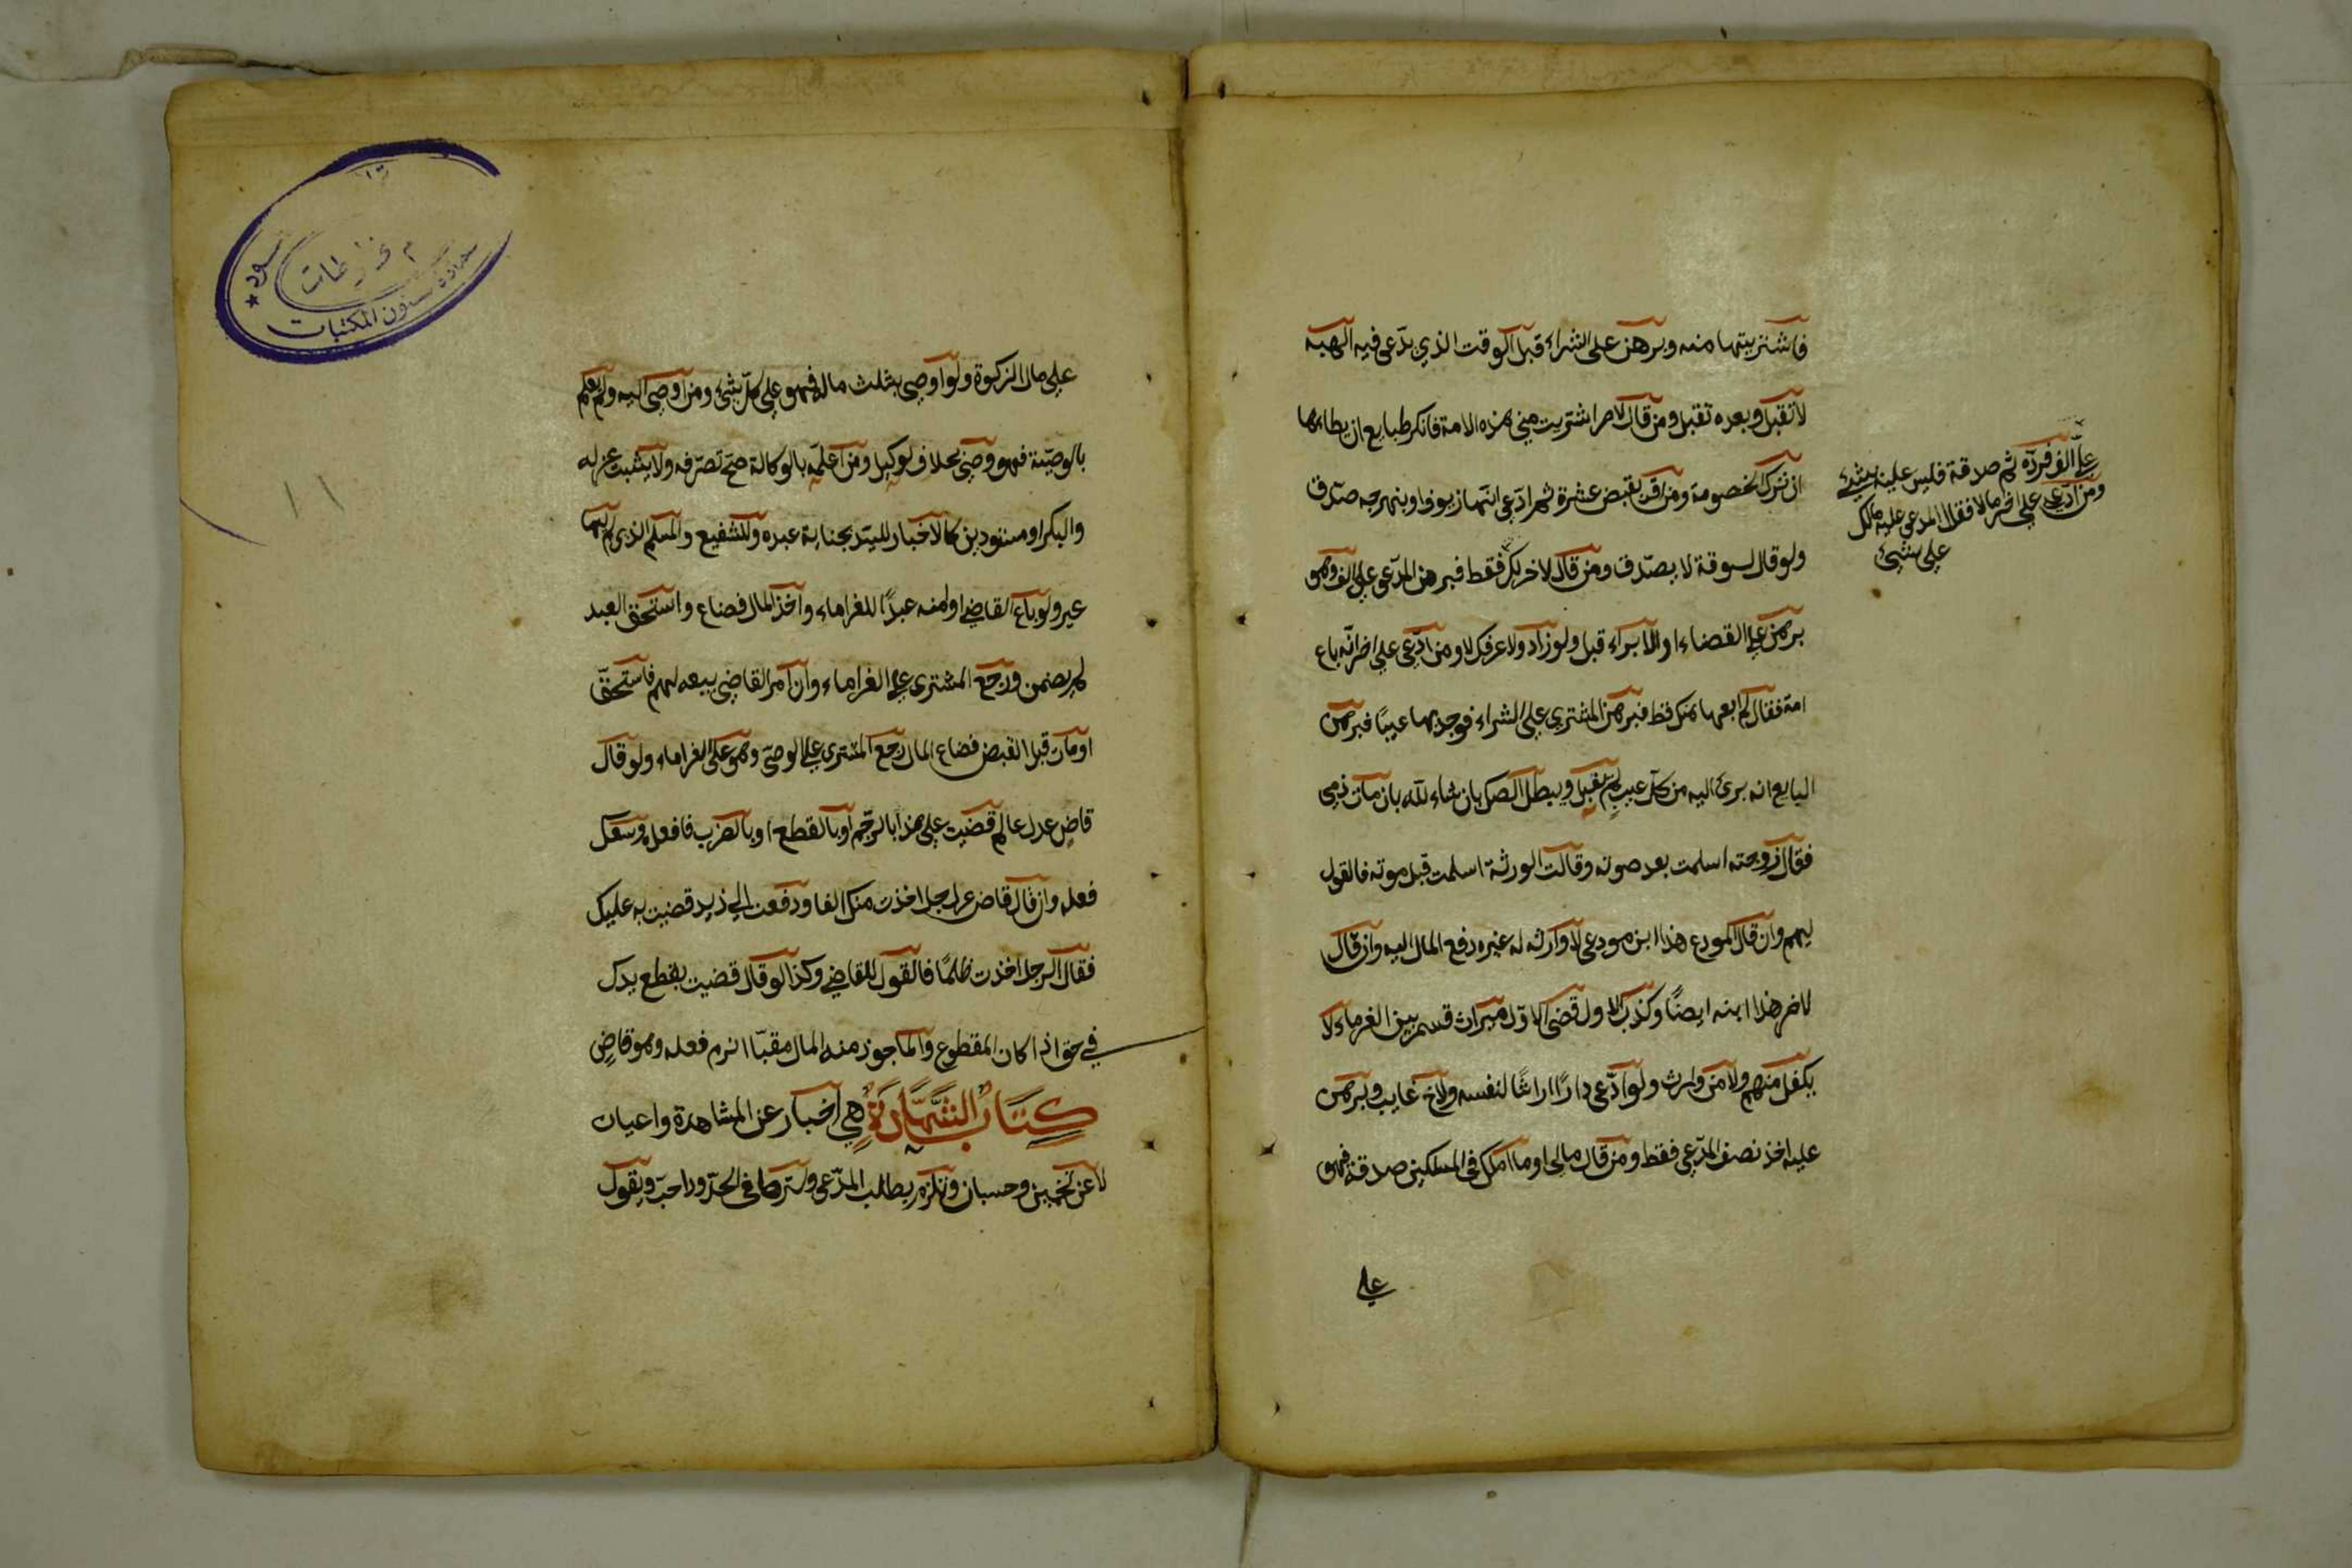 فاشتريتها منه وبرهن على الشراء قبل الوقت الذي يدّعى فيه الهبه
لا تقبل وبعده تقبل ومن قال لاخر اشتريت مني هذه الامة فانكر طبايع ان يطاءها
ان ترك الخصومة ومن اقر بقبض عشرة ثم ادّعى انها زيوف او بنهرجه صدّق
ولو قال لسوقة لا يصدّق ومن قال لاخر لك فقط فبرهن المدّعى على الف وهو
برهن على القضاء او الابراء قبل ولو زاد ولا اعرفك لا ومن ادّعى على اخر انّه باع
امة فقال لم ابعها منك قط فبرهن المشتري على الشراء فوجد بها عيبًا فبرهن
البايع انه برئ اليه من كلّ عيب لم تقبل ويبطل الصك بان شاء الله بان مات ذمى
فقال زوجته اسلمت بعد موته وقالت الورثة اسلمت قبل موته فالقول
لهم وان قال المودع هذا ابن مودعى لا وارث له غيره دفع المال اليه وان قال
لاخر هذا ابنه ايضًا وكذب الاول قضى للاوّل ميراث قسم بين الغرماء لا
يكفل منهم ولا من وارث ولو ادّعى دارًا ارثًا لنفسه ولاخ غايب وبرهن
عليه اخذ نصف المدّعى فقط ومن قال مالى او ما املك فى المسكين صدقة فهو
على
عليّ الف فردّه ثم صدقة فليس عليه شيء
ومن ادّعى على اخر مالا فقال المدعى عليه مالك
على شيء
على مال الزكوة ولو اوصى بثلث ماله فهو على كلّ شئ ومن اوصى اليه ولم يعلم
بالوصيّة فهو وصىّ بخلاف لوكيل ومن اعلمه بالوكالة صحّ تصرّفه ولا يثبت عزله
والبكر او مستودين كالاخبار للسيّد بجناية عبده وللشفيع والمسلم الذى لم يهاجر
غير ولو باع القاضي او امنه عبدًا للغراماء واخذ المال فضاع واستحق العبد
لم يضمن ورجع المشترى على الغراماء وان امر القاضى ببيعه لهم فاستحقّ
او مات قبل القبض فضاع المال رجع المشترى على الوصىّ وهو على الغراماء ولو قال
قاضٍ عدل عالم قضيت على هذا بالرجم او بالقطع او بالضرب فافعله وسعك
فعله وان قال قاض عزل لرجل اخذت منك الفا ودفعت الى زيد قضيت به عليك
فقال الرجل اخذت ظلمًا فالقول للقاضي وكذا لو قال قضيت بقطع يدك
في حق اذا كان المقطوع والماخوذ منه المال مقبّا انرم فعله وهو قاضٍ
كتاب الشهادة هي اخبار عن المشاهدة واعيان
لا عن تخمين وحسبان وتلزم بطلب المدّعى وسترها فى الحدّود احبّ ويقول
عمادة شئون المكتبات